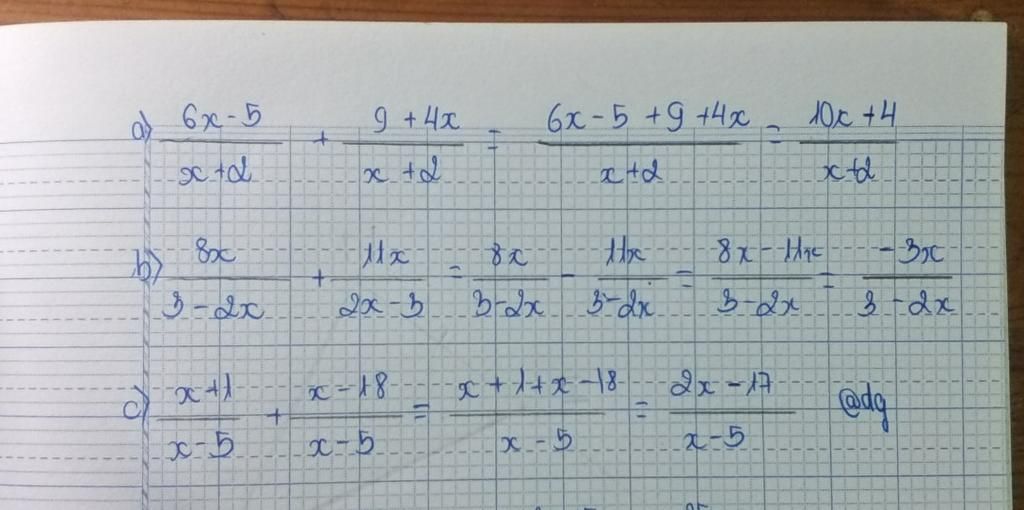 a) (6x-5)/(x+2) + (9+4x)/(x+2) = (6x-5+9+4x)/(x+2) = (10x+4)/(x+2)
b) 8x/(3-2x) + 11x/(2x-3) = 8x/(3-2x) - 11x/(3-2x) = (8x-11x)/(3-2x) = -3x/(3-2x)
c) (x+1)/(x-5) + (x-18)/(x-5) = (x+1+x-18)/(x-5) = (2x-17)/(x-5) @dg